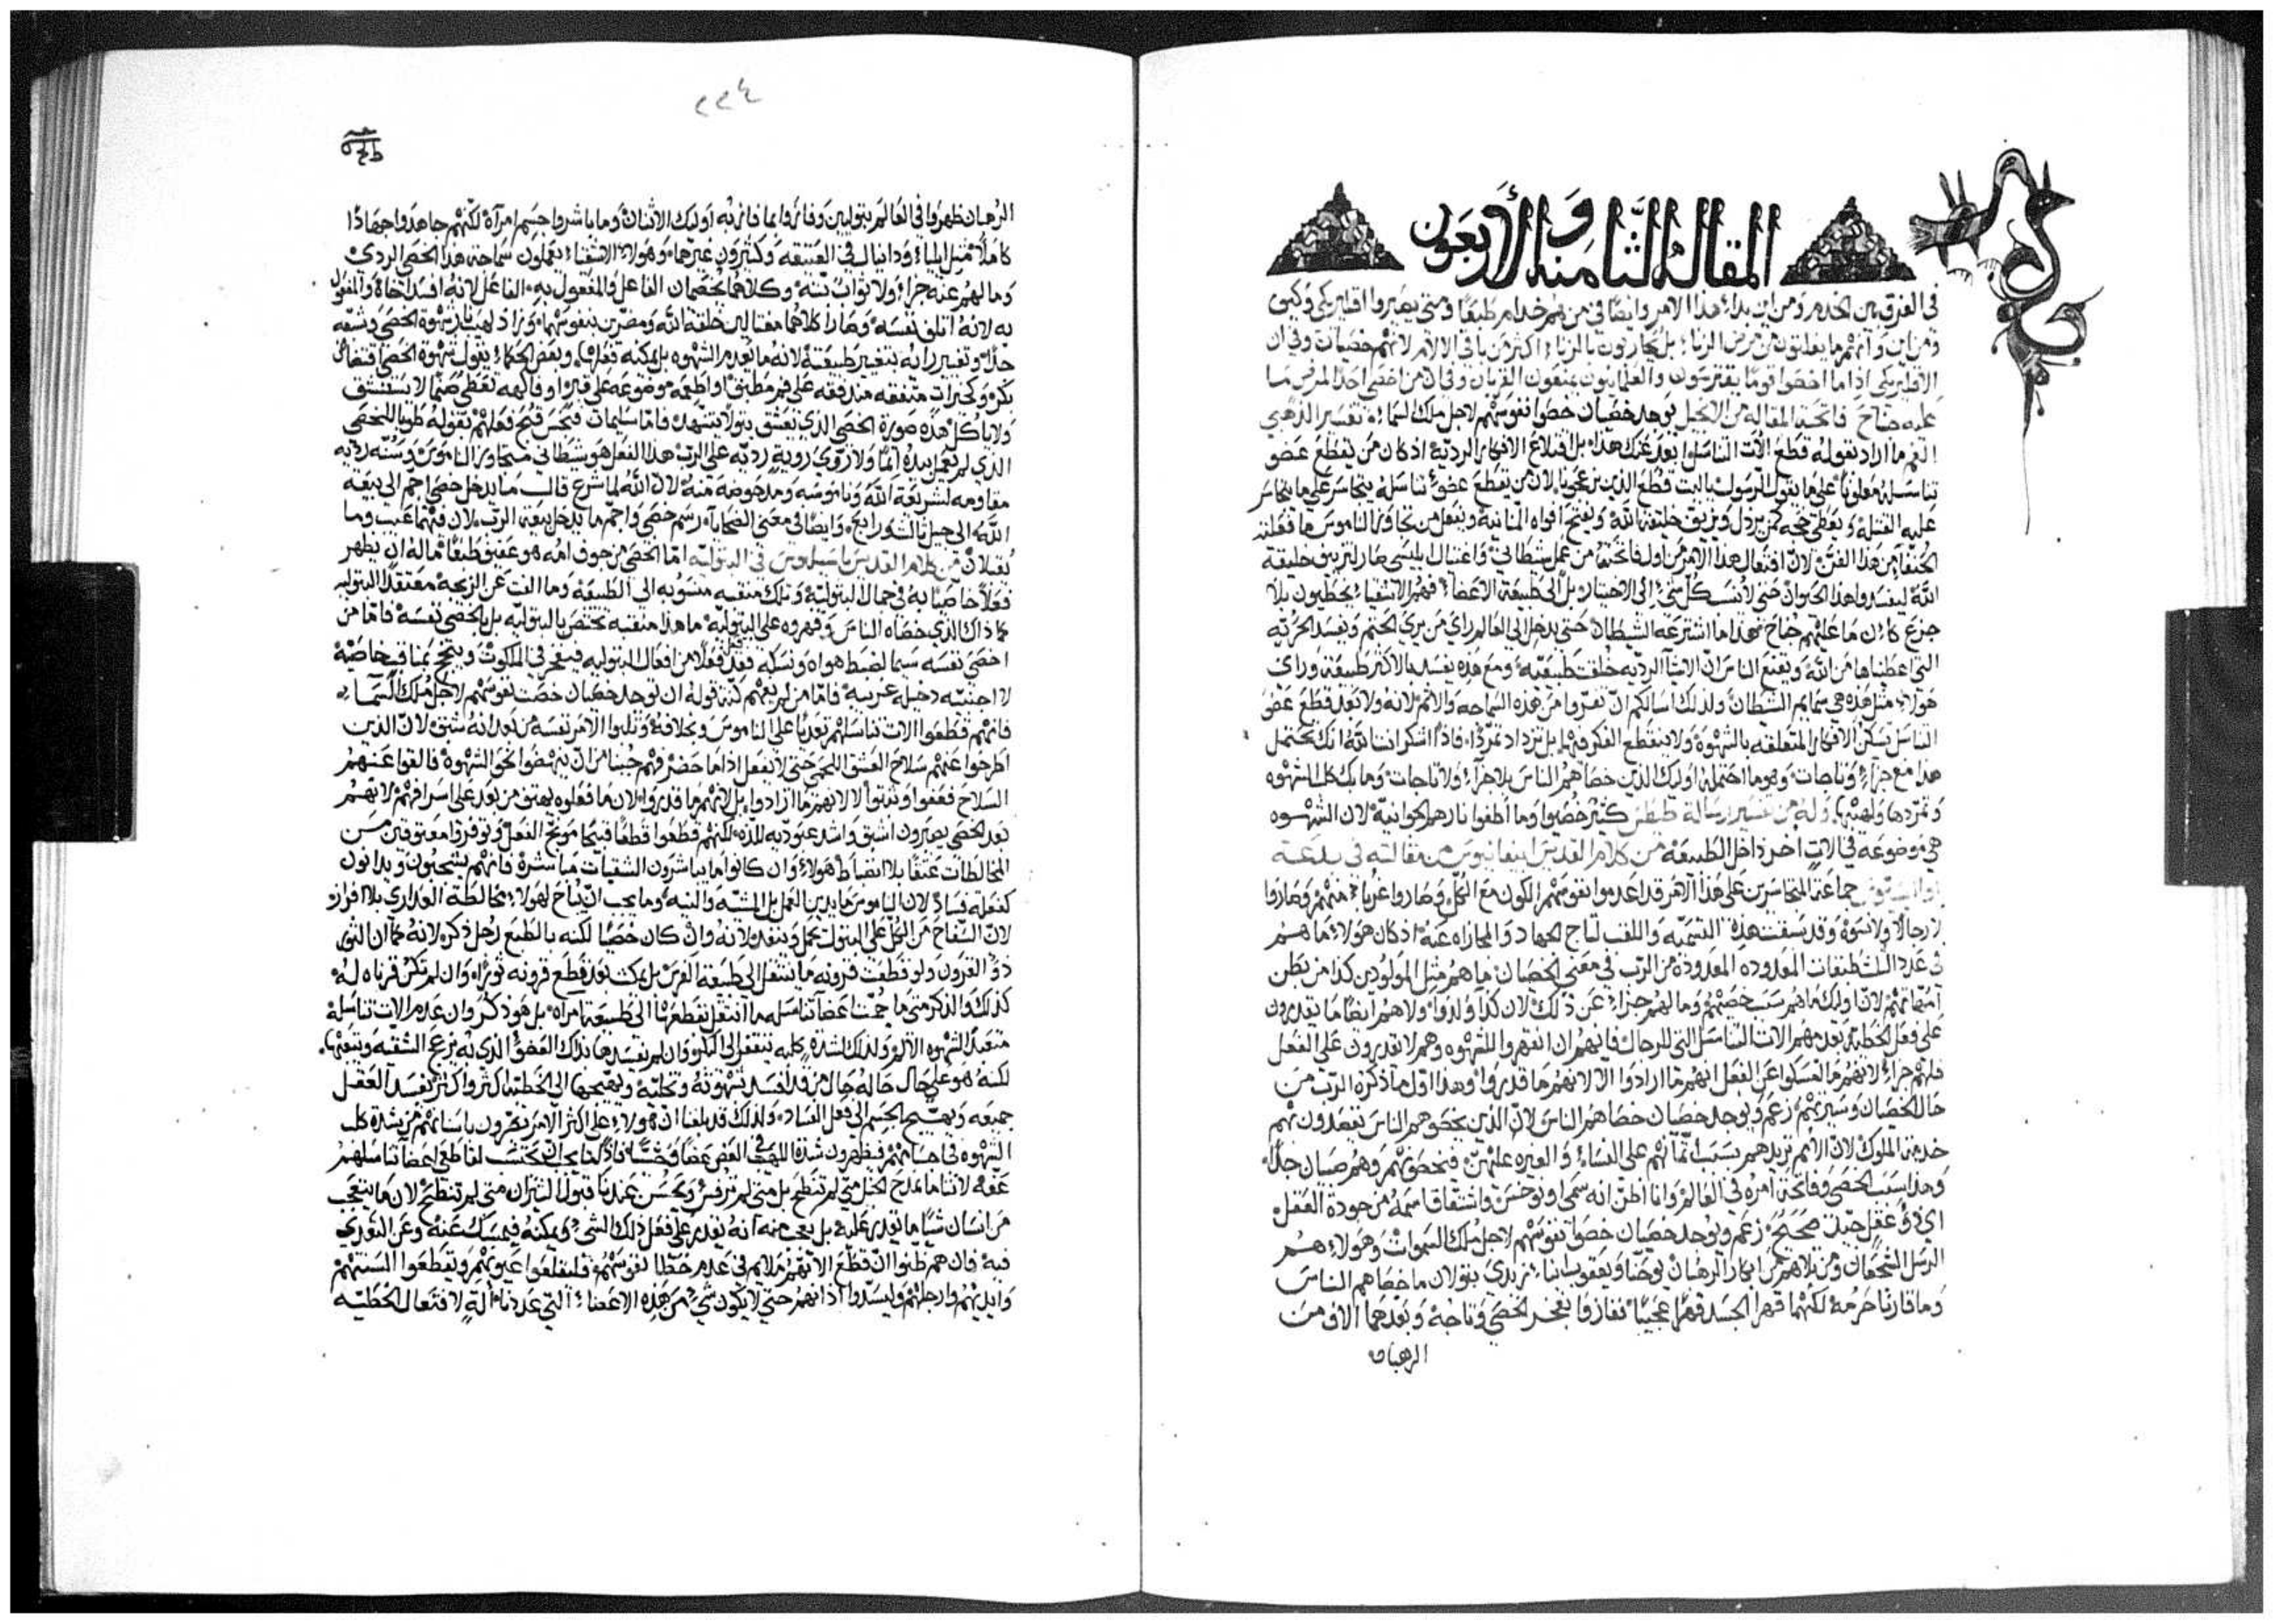 المقالة الثامنة والأربعون
في الفرق بين الخدم ومن اين بداء هذا الامر وايضًا في من هم خدام طبعًا ومتى يصيروا اقليريكي وكيف
ومن اين وانهم ما يفلتون من مرض الزنا بل يحاربون بالزنا اكثر من باقي الانام لانهم خصيان وفي ان
الاقليريكي اذا ما اخصوا قومًا يفترسون والعلمانيون يمنعون القربان وفي ان من اخصى احد المرض ما
عليه جناح فاتحة المقاله من الانجيل يوجد خصيان خصوا نفوسهم لاجل ملك السماء تفسير الذهبي
الفم ما اراد بقوله قطع الات التناسل ابعد عنك هذا بل اقتلاع الافكار الرديه اذ كان من يقطع عضو
تناسله ملعونًا على ما يقول الرسول يا ليت قطع الذين يزعجونا لان من يقطع عضو تناسله يتجاسر على ما يتجاسر
عليه القتلة ويعطي حجه لمن يرذل ويزيف خليقة الله ويفتح افواه المنانية ويفعل من تجاوز الناموس ما فعله
الحنفا من هذا الفن لان افتعال هذا الامر من اول فاتحته من عمل شيطاني واغتيال ابليسي صار لتزييف خليقة
الله ليفسدوا هذا الحيوان حتى لا ينسب كل شيء الى الاختيار بل الى طبيعة الاعضاء فيهم الاشقياء يخطيون بلا
جزع كان ما عليهم جناح هذا ما اشترعه الشيطان حتى يدخل الى العالم راي من يرى الختم ويفسد الحريه
التي اعطيناها من الله ويقنع الناس ان الاشيا الرديه خلقت طبيعيه ومع هذه يفسد بالاكثر طبيعة وراي
هولاء مثل هذه هي سمايم الشيطان ولذلك اسالكم ان تفروا من هذه السماجه والاثم لانه ولا بعد قطع عضو
التناسل تسكن الافكار المتعلقه بالشهوة ولا ينقطع الفكر فيها بل تزداد تمردًا فاذًا اشكر انت الله انك تحتمل
هذا مع جزاء وتاجات وهو ما احتمله اوليك الذين خصاهم الناس بلا جزاء ولا تاجات وما بك كلب الشهوه
وتمردها ولهيبها وله من تفسير رسالة طيطس كثير خصيوا وما اطفوا نارهم الجوانية لان الشهوه
هي موضوعه في الات اخر داخل الطبيعه من كلام القديس ابيفانيوس من مقالته في بدعة
جماعة المتجاسرين على هذا الامر قد اعدموا نفوسهم الكون مع الكل وصاروا غربا منهم وصاروا
لا رجالًا ولا نسوة وقد سبقت هذه التسميه واللقب لتاج الجهاد والمجازاه عنه اذ كان هولاء ما هم
في عدد الثلث طبقات المعدوده المعدودة من الرب في معنى الخصيان فما هم مثل المولودين كذا من بطن
امهاتهم لان اوليك ما هم سبب خصيهم وما لهم جزاء عن ذلك لان كذا ولدوا ولا هم ايضًا ما يقدرون
على فعل الخطية بعدمهم الات التناسل التي للرجال فانهم ان انقهروا للشهوه وهم لا يقدرون على الفعل
فلهم جزاء لا بقهرهم ما امسكوا عن الفعل انهم ما ارادوا الا لانهم ما قدروا وهذا اول ما ذكره الرب من
حال الخصيان وسيرتهم زعم ويوجد خصيان خصاهم الناس لان الذين يخصوهم الناس يقصدون بهم
خدمة الملوك لان الامم تريدهم بسبب اتمانهم على النساء والغيره عليهن فيخصونهم وهم صبيان جدًا
وهذا سبب الخصي وفاتحة امره في العالم وانا اظن انه سمي اونوخس واشتقاق اسمه من جودة العقل
اي ذو عقل جيد صحيح زعم ويوجد خصيان خصوا نفوسهم لاجل ملك السموات وهولاء هم
الرسل الشجعان ومن تلاهم من ابكار الرهبان يوحنا ويعقوب ابنا زبدي بتولان ما خصاهم الناس
وما قارنا حرمة لكنهما قهرا الجسد قهرًا عجيبًا ففازوا بفخر الخصي وتاجه وبعدهما الاف من
الرهبان
٢٢٤
الرهبان ظهروا في العالم بتوليين وفازوا بما فاز به اوليك الاثنان وما باشروا جسم امرأة لكنهم جاهدوا جهادًا
كاملًا مثل ايليا ودانيال في العتيقه وكثيرون غيرهما وهولاء الاشقياء يعملون سماجة هذا الخصي الردي
وما لهم عنه جزاء ولا ثواب ثنة وكلاهما يخصمان الفاعل والمفعول به الفاعل لانه افسد اخاه والمفعول
به لانه اتلف نفسه وصارا كلاهما مقتالين خلقة الله ومضرين بنفوسهما وزاد لهيب نار شهوة الخصي وشبقه
جدًا وتغير رايه بتغير طبيعته لانه ما يعدم الشهوه بل يمكنه فعلها وبعض الحكماء يقول شهوة الخصي اقتضاض
بكر وكخيرات متفقه مندفقه على فم مطبق او اطعمه موضوعه على قبر او فاكهه تعطى صنمًا لا يستنشق
ولا ياكل هذه صورة الخصي الذي يعشق بتولًا بتشهد فاما سليمان فيحسن قبح فعلهم بقوله طوبا للخصي
الذي لم يعمل بيده اثمًا ولا روى روية رديه على الرب هذا الفعل هو شيطاني متجاوز الناموس وسنه رديه
مقاومه لشريعة الله وناموسه ومدحوضه منه لان الله لما شرع قال ما يدخل خصي اجم الى بيعه
الله الى جيل ثالث ورابع وايضًا في معنى الضحايا رسم خصي واجم ما يدخل بيعة الرب لان فيهما عيب وما
يقبلان من كلام القديس باسيليوس في البتوليه اما الخصي من جوف امه هو عفيف طبعًا فما له ان يظهر
فعلًا خاصيًا به في جمال البتولية وتلك منقبه منسوبه الى الطبيعه وما الفت عن الزيجة معتقدًا البتوليه
كما ذاك الذي خصاه الناس وقهروه على البتوليه ما هذا منقبه تختص بالبتوليه بل بالخصي نفسه فاما من
اخصى نفسه سيما لضبط هواه ونسكه فقد فعل فعلًا من افعال البتوليه فيفخر في الملكوت وينجح بمناقب خاصية
لا اجنبيه دخيله غريبه فاما من لم يفهم كنه قوله ان يوجد خصيان خصت نفوسهم لاجل ملك السماء
فانهم قطعوا الات تناسلهم بعديًا على الناموس وبخلافه وثلبوا الامر نفسه من بعد انه شبق لان الذين
اطرحوا عنهم سلاح العشق اللحمي حتى لا يفعل اذا ما حضر فهم جبنا من ان ينهضوا نحو الشهوة فالقوا عنهم
السلاح فعفوا وتبتوا لا لانهم ما ارادوا بل لانهم ما قدروا لان ما فعلوه يهتف من بعد على اسرافهم لانهم
بعد الخصي يصيرون اشبق واشد عبوديه للذه لكنهم قطعوا قطعًا قبيحًا موبخ الفعل وتوفروا معيوقين من
المخالطات عتقًا بلا انضباط هولاء وان كانوا ما يباشرون الشقيات مباشرة فانهم يشتهون ويدانون
كفعله فسادًا لان الناموس ما يدين العمل بل المشيه والنيه وما يجب ان يباح لهولاء مخالطة العذاري بلا افراز
لان السفاح من الكل على البتولة يحمل وينفذ لانه وان كان خصيًا لكنه بالطبع رجل ذكر لانه كما ان الثور
ذو القرون ولو قطعت قرونه ما ينتقل الى طبيعة الفرس بل يمكث بعد قطع قرونه ثورًا وان لم تكن قرناه له
كذلك والذكر متى ما جبت اعضا تناسله ما انتقل بقطعها الى طبيعة امراه بل هو ذكر وان عدم الات تناسله
متعبد لشهوه الاثم ولذلك لشدة كلبه ينتقل الى المكر وان لم يفسدها بذلك العضو الذي به نزع الشقيه ويتعبها
لكنه هو على حال حاله كحال من قد افسد شهوته وتخليه ويهيجها الى الخطيه اكثر واكثر يفسد العقل
جميعه ويهيج الجسم الى فعل الفساد ولذلك قد بلغنا ان هولاء على اكثر الامر نفرون باسنانهم من شدة كلب
الشهوه في اجسامهم فيظهرون شدة اللهف في العض عضًا وحشيًا فاذًا كما يجب ان يحتسب لقاطعي اعضا تناسلهم
عفه لاننا ما نمدح الخيل متى لم تنطح بل متى لم ترفس ويحسن عندنا قبول الثيران متى لم تنطح لان ما يتعجب
من انسان شيًا ما يقدر عليه بل يعجب منه انه يقدر على فعل ذلك الشيء ويمكنه فيمسك عنه وعن التعدي
فيه فان هم ظنوا ان قطع الاتهم ملام في عدم خطا نفوسهم فليقلعوا عيونهم ويقطعوا السنتهم
وايديهم وارجلهم وليسدوا اذانهم حتى لا يكون شيء من هذه الاعضاء التي عددنا الة لافتعال الخطيه